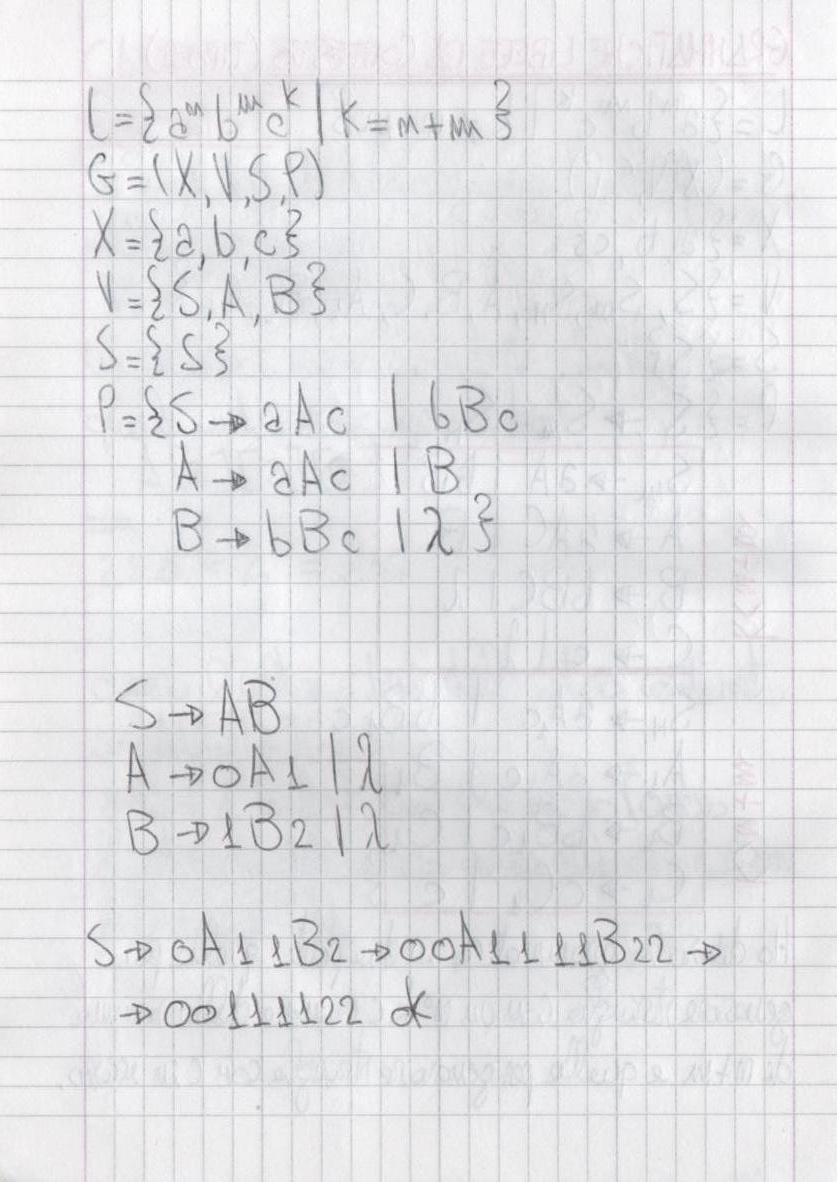 L={aⁿ bᵐ cᵏ | K=n+m}
G=(X,V,S,P)
X={a,b,c}
V={S,A,B}
S={S}
P={S→aAc | bBc
A→aAc | B
B→bBc | λ}
S→AB
A→0A1 | λ
B→1B2 | λ
S→0A11B2→00A1111B22→
→00111122 ok